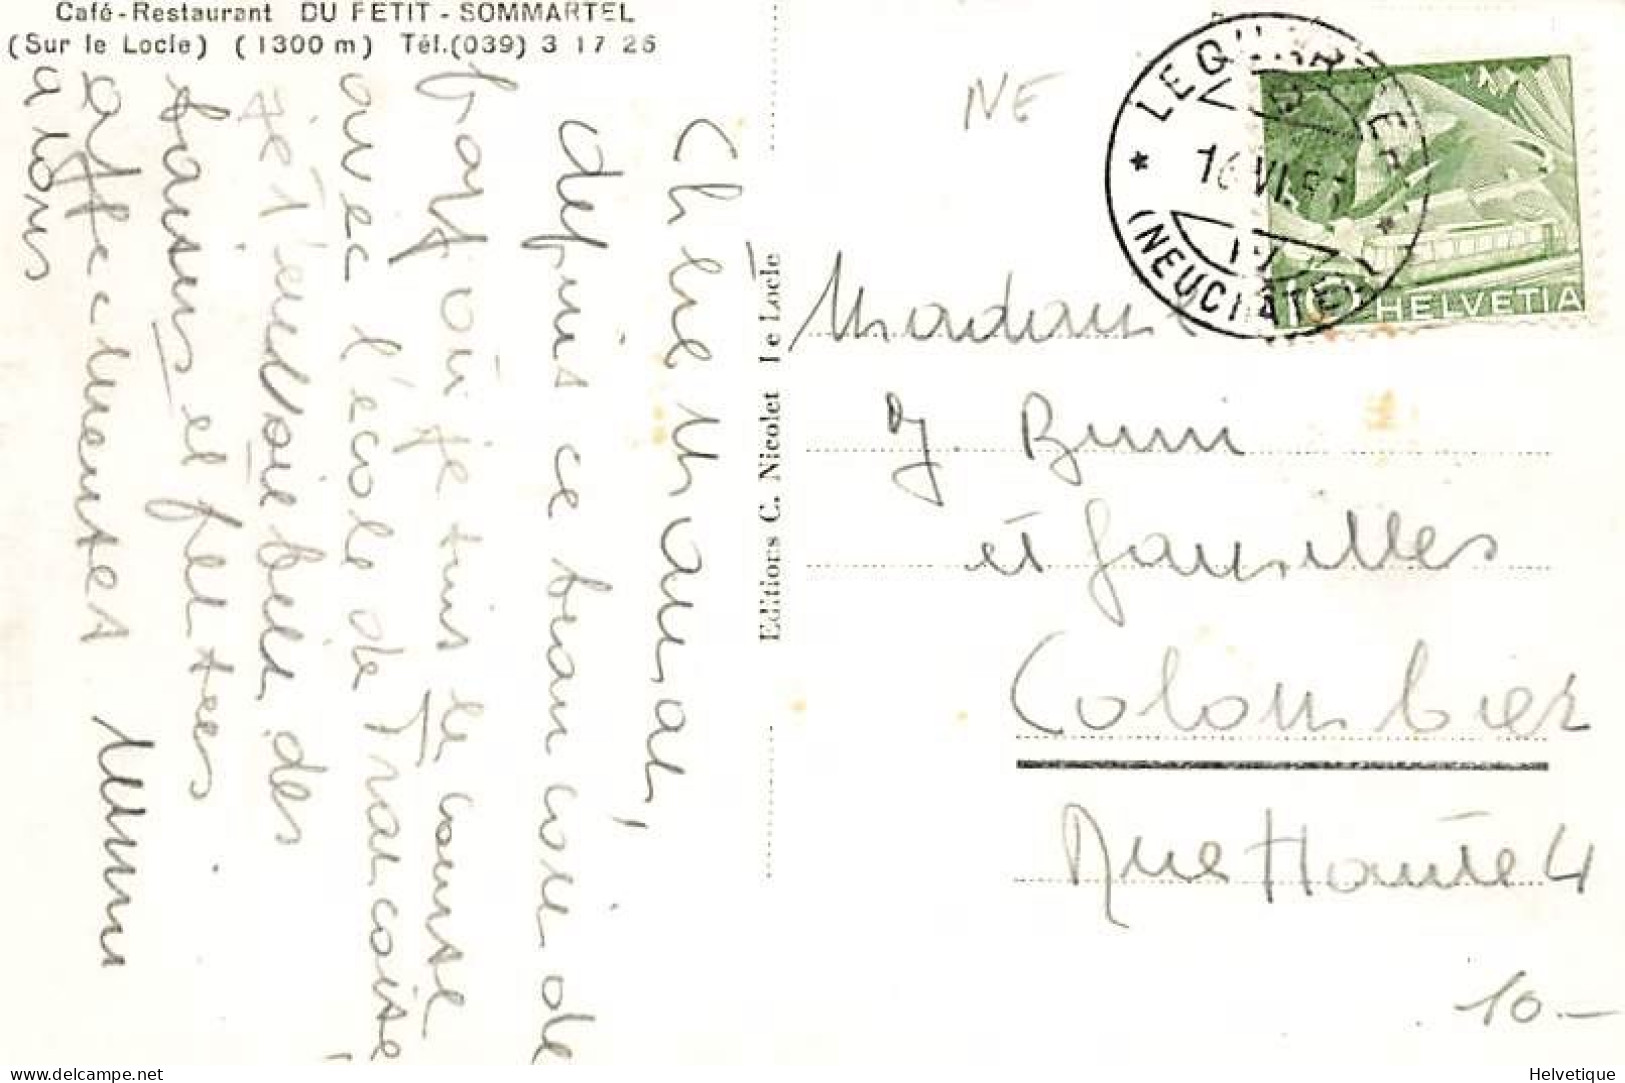 Café-Restaurant DU PETIT - SOMMARTEL
(Sur le Locle) (1300 m) Tél.(039) 3 17 26
Chère Maman,
depuis ce beau coin de
pays où je suis la course
avec l'école de Françoise,
je t'envoie bien des
baisers et pensées
affectueuses
à tous Mimi
Editions C. Nicolet le Locle
NE
LE QUARTIER
16.VI.5
(NEUCHÂTEL)
10 HELVETIA
Madame
J. Burri
et familles
Colombier
Rue Haute 4
10.-
delcampe.net
Helvetique